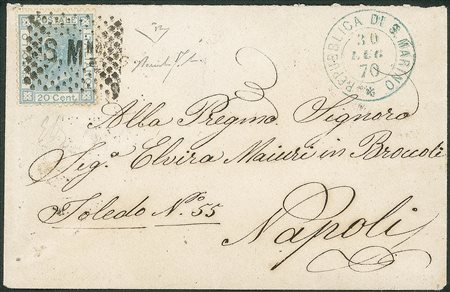 S. M
20 Cent.
REPUBBLICA DI S. MARINO
30
70
Alla Pregma Signora
Sig.a Elvira Maiuri in Broccoli
Toledo No. 55
Napoli